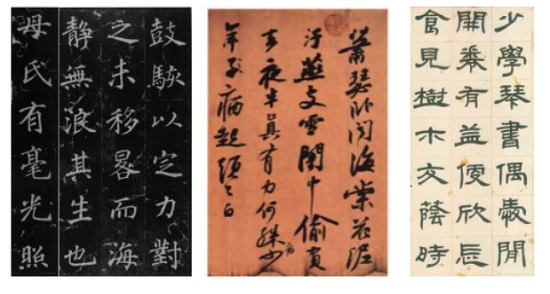 鼓駭以定力對
之未移晷而海
靜無浪其生也
母氏有毫光照
蕭瑟卧聞海棠花泥
汙燕支雪闇中偷負
去夜半真有力何殊少
年子病起須已白
少學琴書偶愛閒
開卷有益便欣忘
食見樹木交蔭時